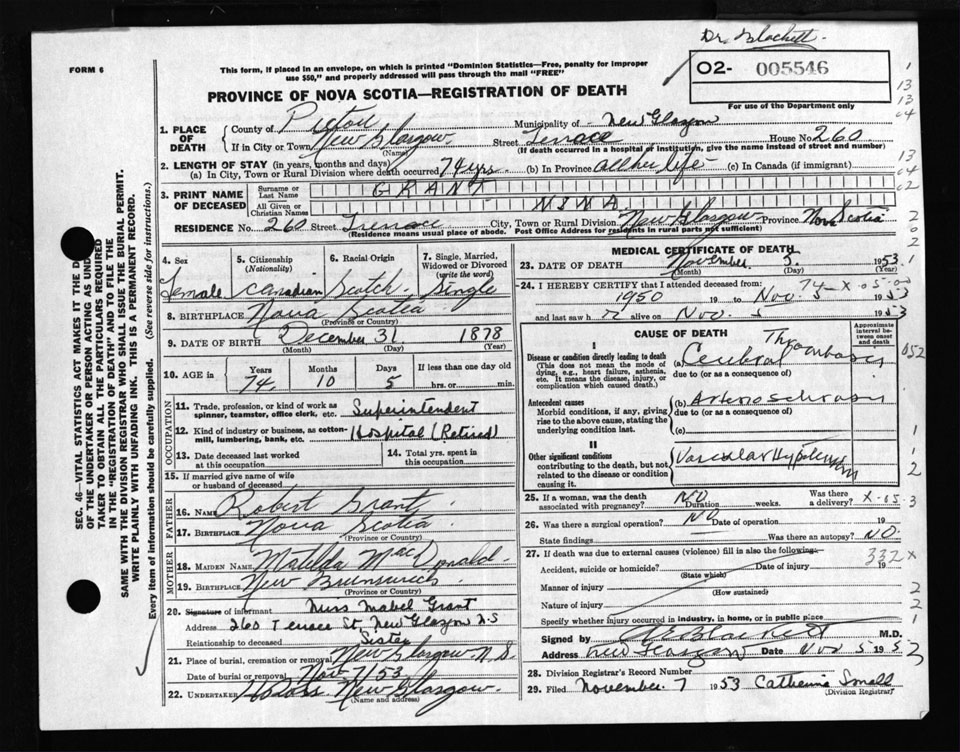 Dr. Blackett
FORM 6
This form, if placed in an envelope, on which is printed "Dominion Statistics—Free, penalty for improper
use $50," and properly addressed will pass through the mail "FREE"
02- 005546
For use of the Department only
PROVINCE OF NOVA SCOTIA—REGISTRATION OF DEATH
1. PLACE OF DEATH
County of Pictou Municipality of New Glasgow
If in City or Town New Glasgow (Name) Street Terrace House No. 260
(If death occurred in a hospital or institution, give the name instead of street and number)
2. LENGTH OF STAY (in years, months and days)
(a) In City, Town or Rural Division where death occurred 74 yrs. (b) In Province all her life (c) In Canada (if immigrant)
3. PRINT NAME OF DECEASED
Surname or Last Name GRANT
All Given or Christian Names NINA
RESIDENCE No. 260 Street Terrace City, Town or Rural Division New Glasgow Province Nova Scotia
(Residence means usual place of abode. Post Office Address for residents in rural parts not sufficient)
4. Sex Female
5. Citizenship (Nationality) Canadian
6. Racial Origin Scotch
7. Single, Married, Widowed or Divorced (write the word) Single
8. BIRTHPLACE Nova Scotia
(Province or Country)
9. DATE OF BIRTH December 31 1878
(Month) (Day) (Year)
10. AGE in Years 74 Months 10 Days 5 If less than one day old hrs. or min.
OCCUPATION
11. Trade, profession, or kind of work as spinner, teamster, office clerk, etc. Superintendent
12. Kind of industry or business, as cotton-mill, lumbering, bank, etc. Hospital (Retired)
13. Date deceased last worked at this occupation
14. Total yrs. spent in this occupation
15. If married give name of wife or husband of deceased
FATHER
16. Name Robert Grant
17. Birthplace Nova Scotia
(Province or Country)
MOTHER
18. MAIDEN NAME Matilda MacDonald
19. BIRTHPLACE New Brunswick
(Province or Country)
20. Signature of informant Miss Mabel Grant
Address 260 Terrace St. New Glasgow N.S
Relationship to deceased Sister
21. Place of burial, cremation or removal New Glasgow N.S.
Date of burial or removal Nov 7/53
22. UNDERTAKER New Glasgow
(Name and address)
MEDICAL CERTIFICATE OF DEATH
23. DATE OF DEATH November 5 1953
(Month) (Day) (Year)
24. I HEREBY CERTIFY that I attended deceased from:
74-X-05-00
1950 19 to Nov. 5 1953
and last saw h alive on Nov. 5 1953
CAUSE OF DEATH
Approximate interval between onset and death
I
Disease or condition directly leading to death
(This does not mean the mode of dying, e.g., heart failure, asthenia, etc. It means the disease, injury, or complication which caused death.)
(a) Cerebral Thrombosis
due to (or as a consequence of)
052
Antecedent causes
Morbid conditions, if any, giving rise to the above cause, stating the underlying condition last.
(b) Arteriosclerosis
due to (or as a consequence of)
(c)
II
Other significant conditions
contributing to the death, but not related to the disease or condition causing it.
Vascular Hypertension
25. If a woman, was the death associated with pregnancy? NO Duration weeks. Was there a delivery? X-05-3
26. Was there a surgical operation? NO Date of operation 19
State findings Was there an autopsy? NO.
27. If death was due to external causes (violence) fill in also the following:
332X
Accident, suicide or homicide? (State which) Date of injury 19
Manner of injury (How sustained)
Nature of injury
Specify whether injury occurred in industry, in home, or in public place
Signed by Blackett M.D.
Address New Glasgow Date Nov 5 1953
28. Division Registrar's Record Number
29. Filed November 7 1953 Catherine Small
(Division Registrar)
SEC. 46—VITAL STATISTICS ACT MAKES IT THE D
OF THE UNDERTAKER OR PERSON ACTING AS UND
TAKER TO OBTAIN ALL THE PARTICULARS REQUIRED
IN THE "REGISTRATION OF DEATH" AND TO FILE THE
SAME WITH THE DIVISION REGISTRAR WHO SHALL ISSUE THE BURIAL PERMIT.
WRITE PLAINLY WITH UNFADING INK. THIS IS A PERMANENT RECORD.
Every item of information should be carefully supplied. (See reverse side for instructions.)